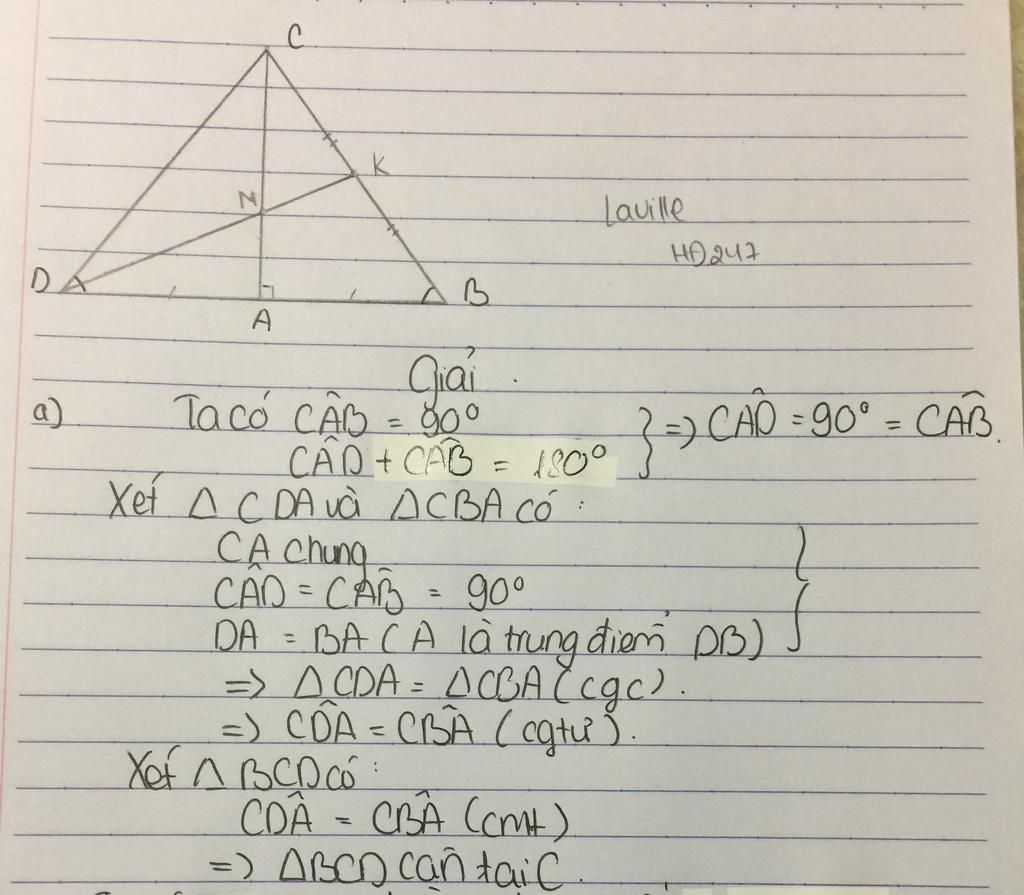 C
K
M
D
B
A
Laville
HD247
Giải.
a) Ta có CÂB = 90°
CÂD + CÂB = 180°
} => CÂD = 90° = CÂB.
Xét Δ CDA và ΔCBA có :
CA chung
CÂD = CÂB = 90°
DA = BA (A là trung điểm DB)
=> ΔCDA = ΔCBA (cgc).
=> CD̂A = CB̂A (cgtư).
Xét Δ BCD có :
CD̂A = CB̂A (cmt)
=> ΔBCD cân tại C.